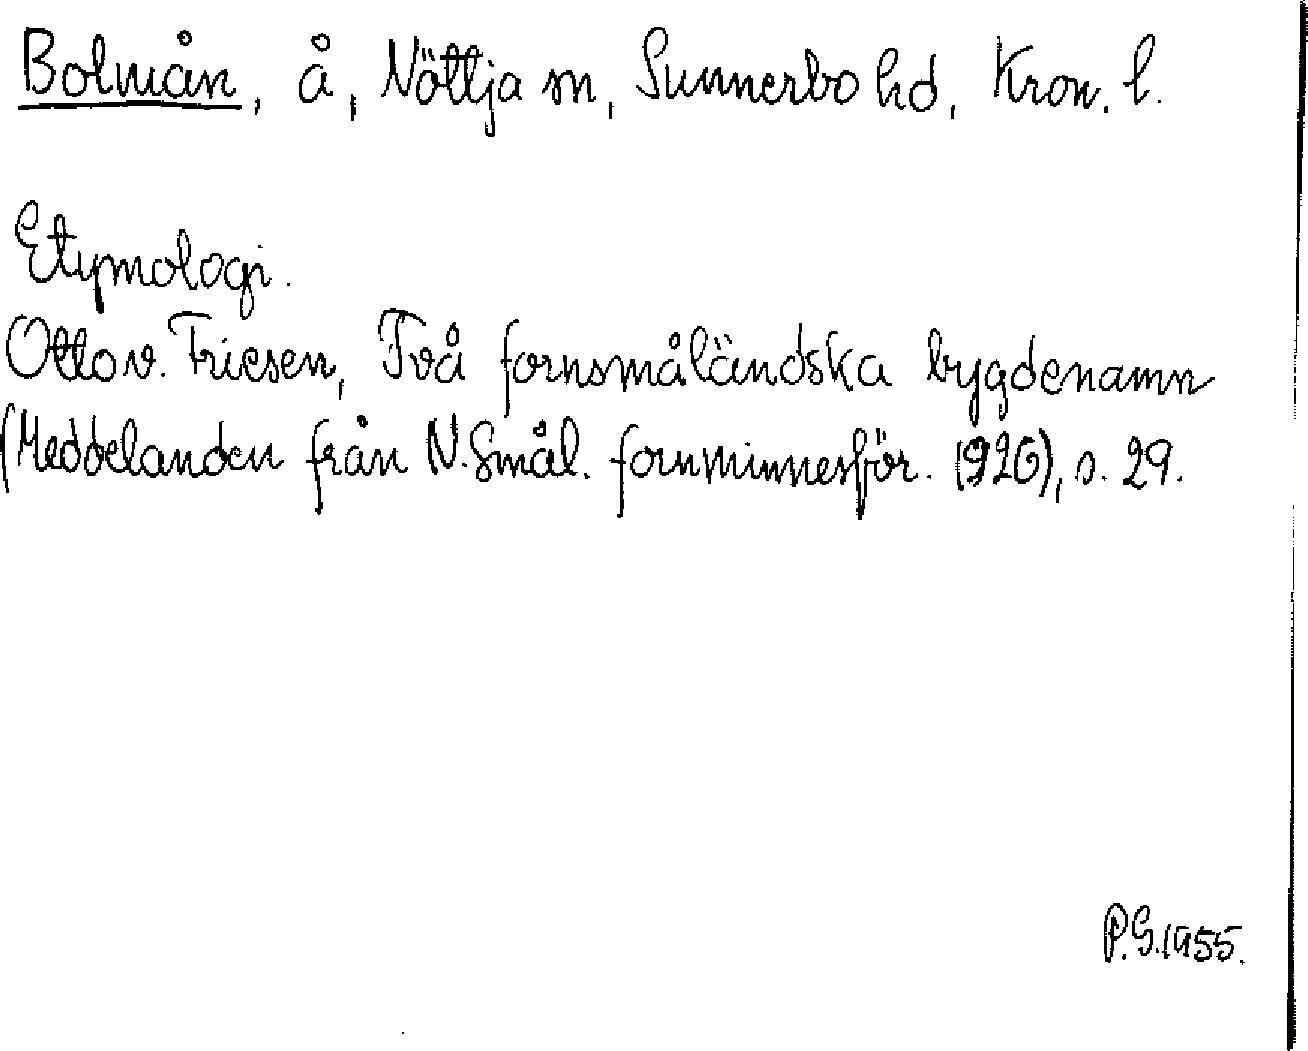 Bolmån, å, Nöttja sn, Sunnerbo hd, Kron. l.
Etymologi.
Otto v. Friesen, Två fornsmåländska bygdenamn
(Meddelanden från N. Smål. fornminnesför. 1926), s. 29.
P.S. 1955.